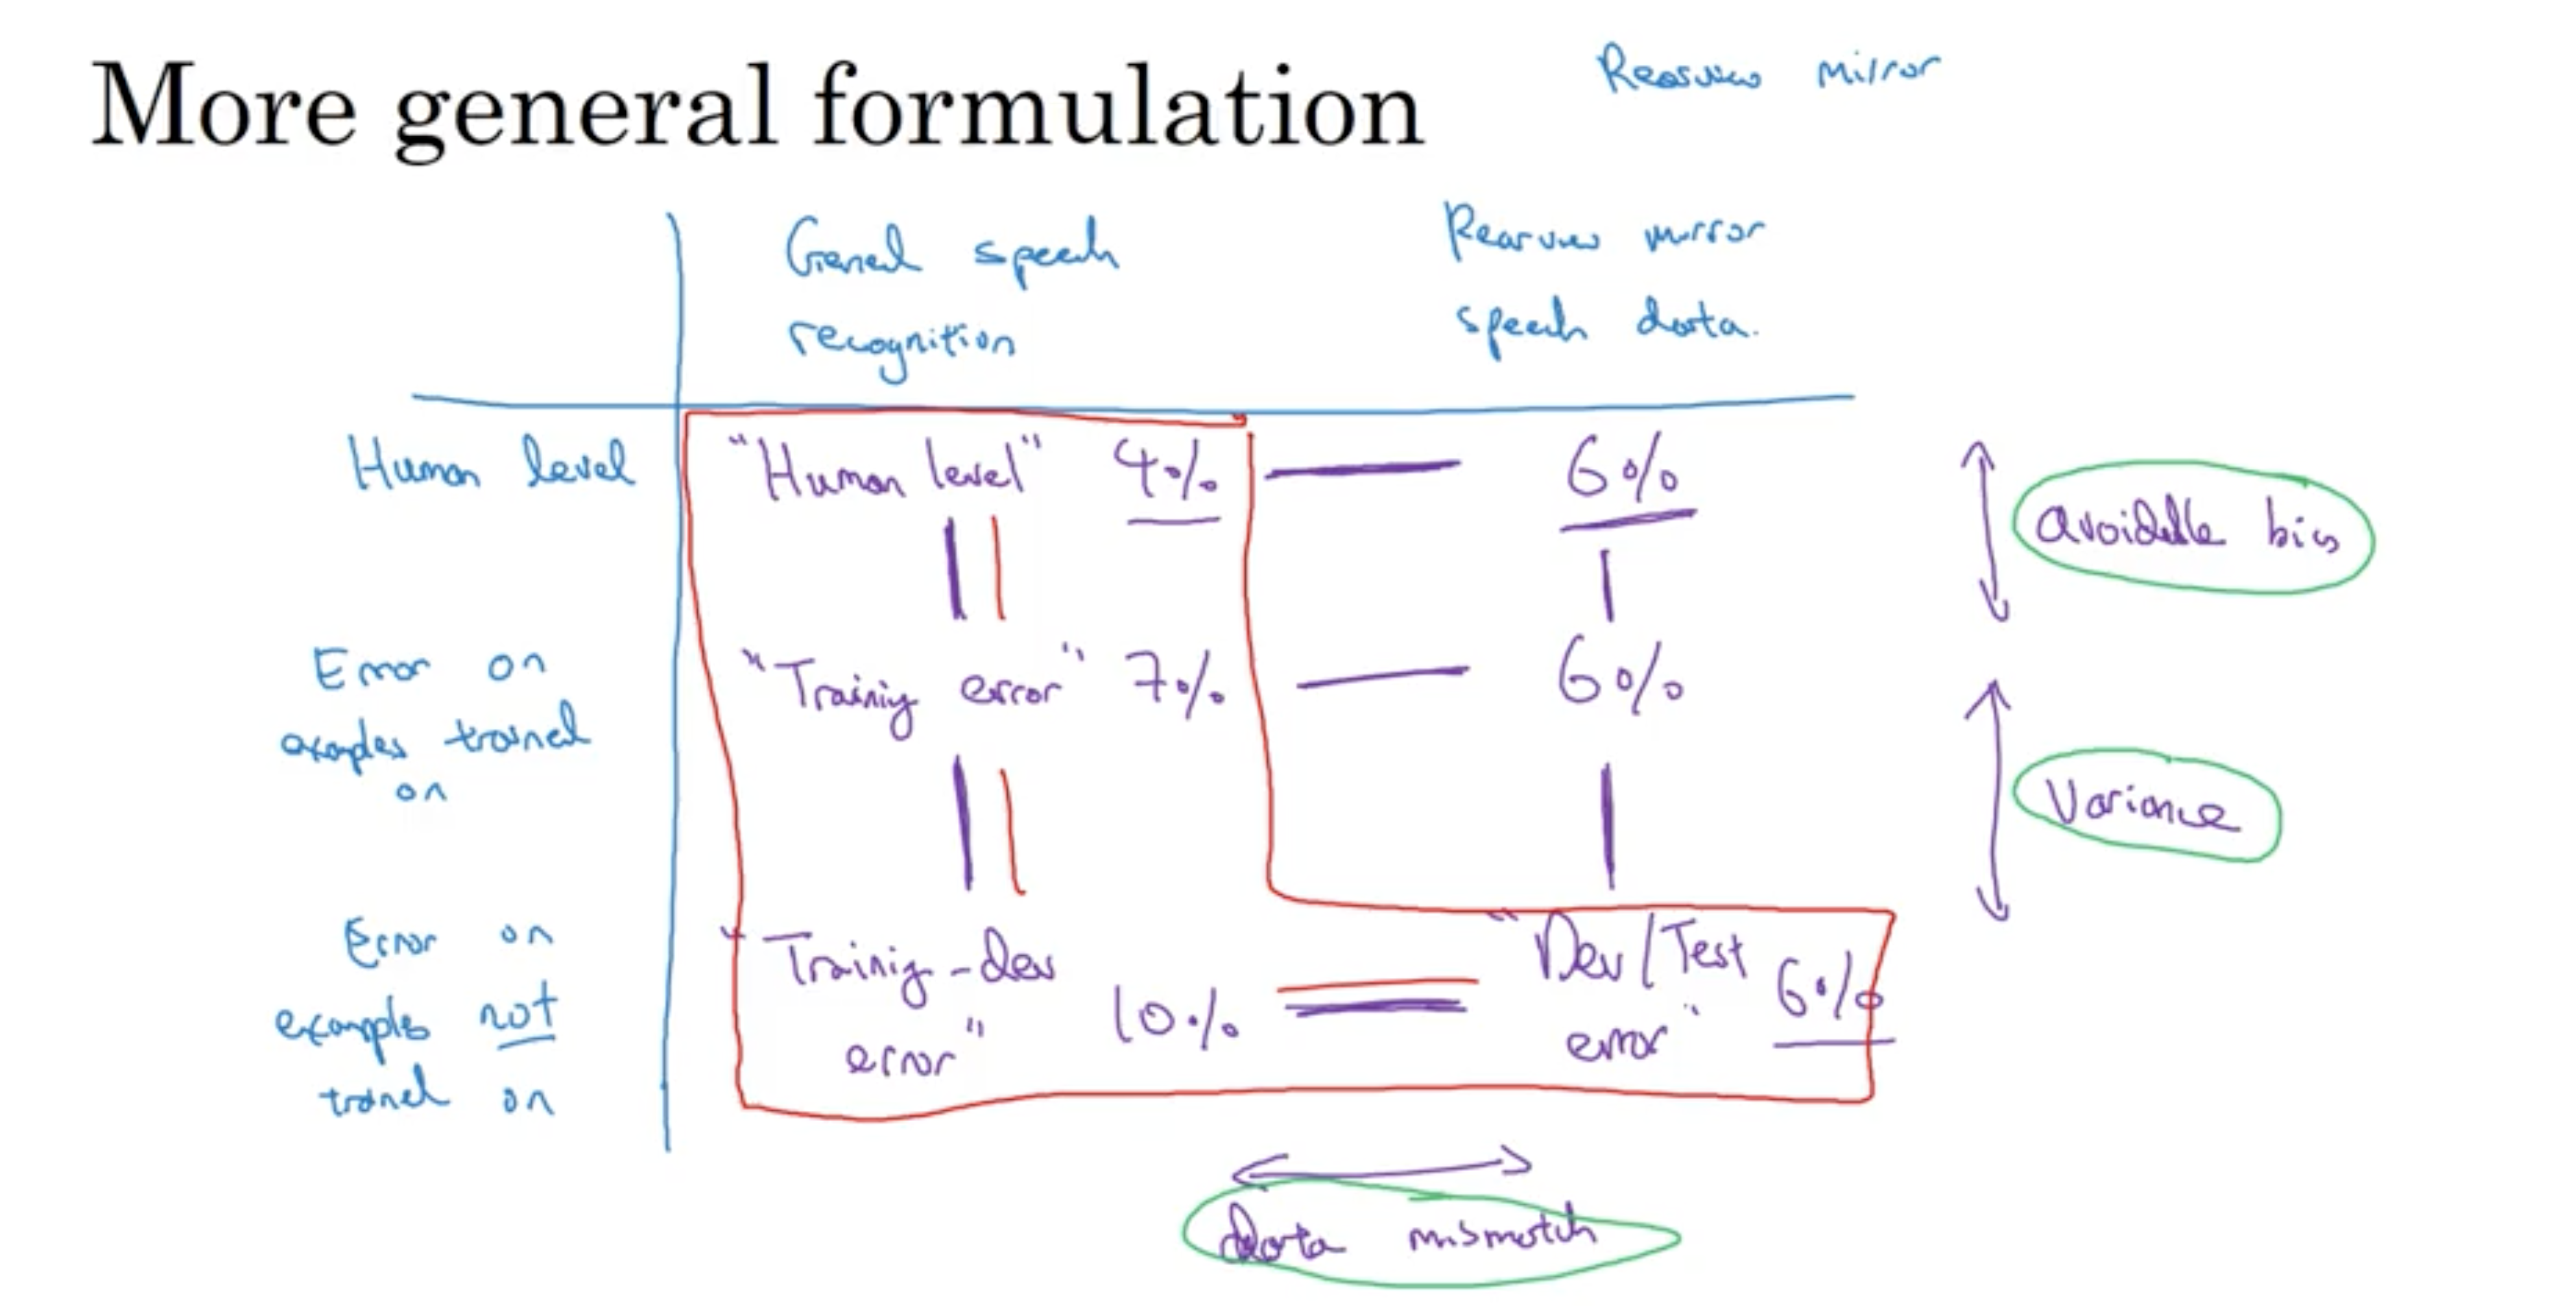 More general formulation
Rearview mirror
General speech recognition
Rearview mirror speech data.
Human level
"Human level" 4%
6%
avoidable bias
Error on examples trained on
"Training error" 7%
6%
Variance
Error on examples not trained on
"Training-dev error" 10%
"Dev/Test error" 6%
Data mismatch